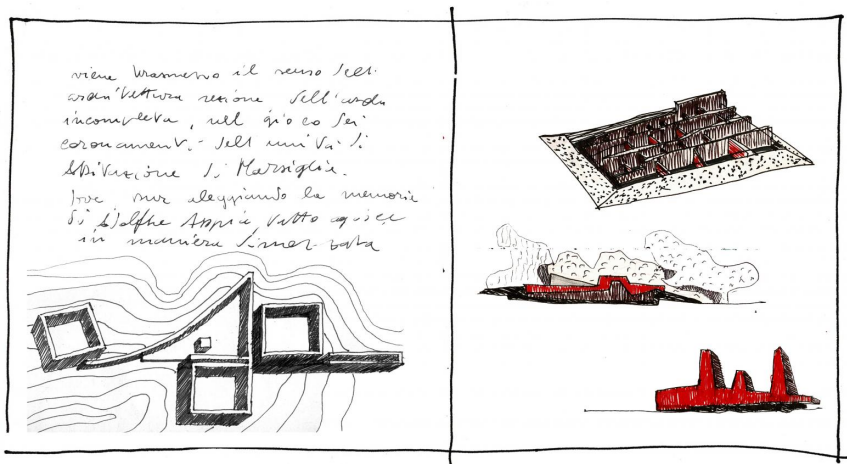 viene trasmesso il senso dell'
architettura sezione dell'
incompleta, nel gioco dei
coronamenti dell unità di
abitazione di Marsiglia.
Dove pur aleggiando la memoria
di Adolphe Appia, tutto agisce
in maniera